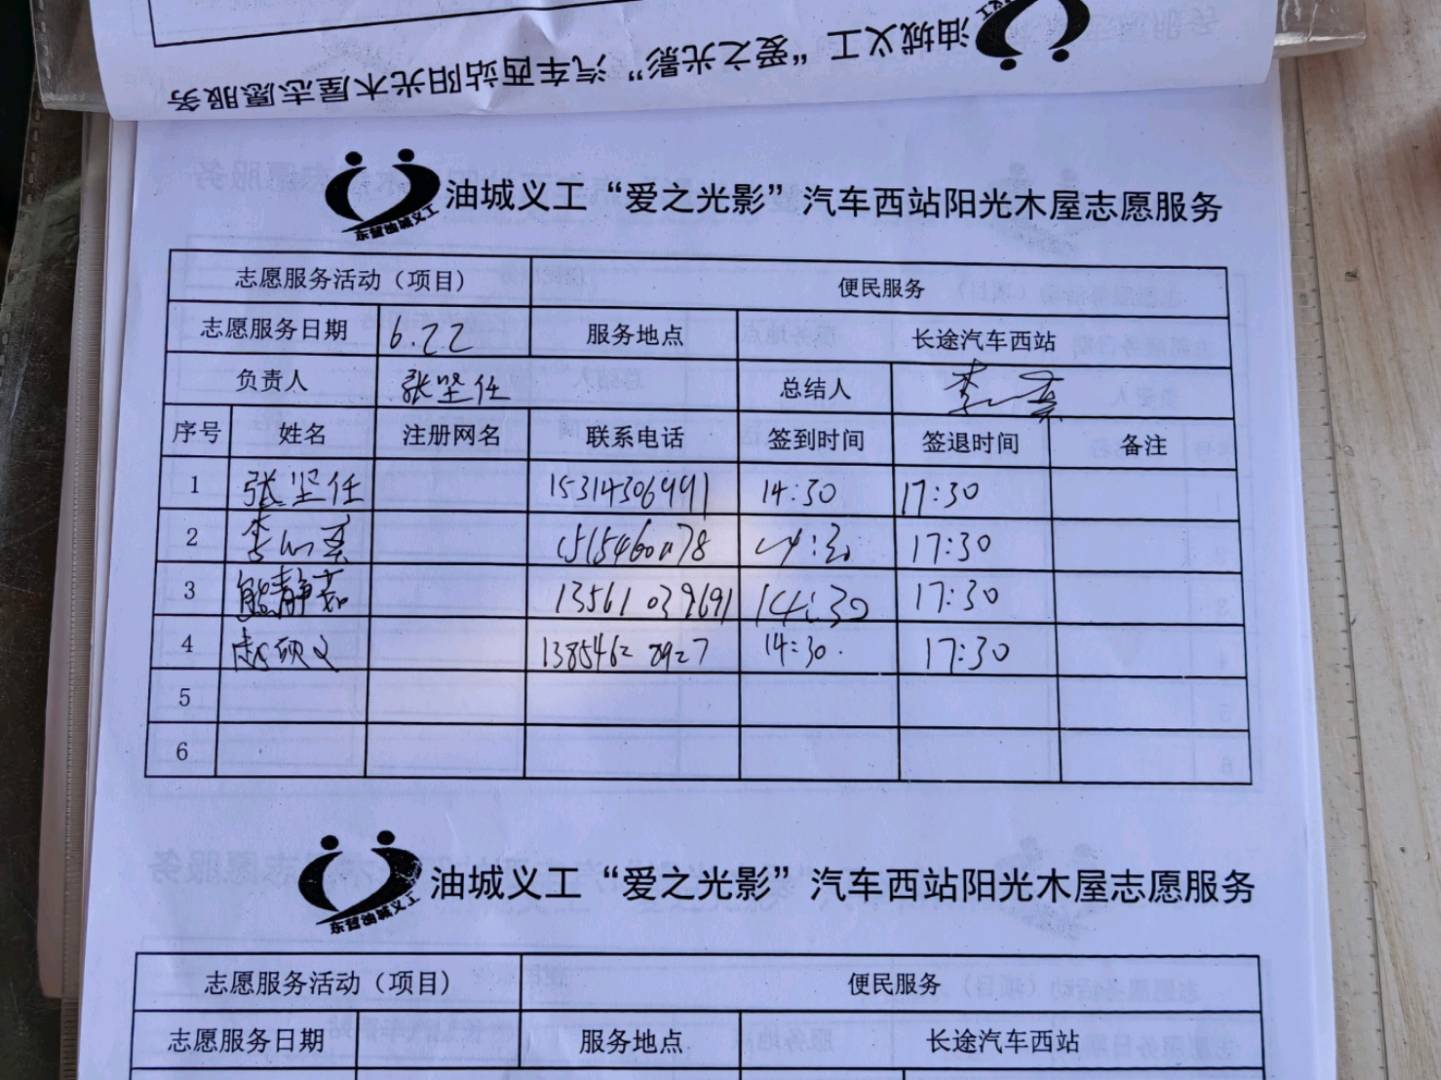 油城义工“爱之光影”汽车西站阳光木屋志愿服务
东营油城义工
油城义工“爱之光影”汽车西站阳光木屋志愿服务
志愿服务活动（项目） 便民服务
志愿服务日期 6.22 服务地点 长途汽车西站
负责人 张坚任 总结人
序号 姓名 注册网名 联系电话 签到时间 签退时间 备注
1 张坚任 14:30 17:30
2 14:30 17:30
3 熊静茹 13561039691 14:30 17:30
4 14:30 17:30
5
6
东营油城义工
油城义工“爱之光影”汽车西站阳光木屋志愿服务
志愿服务活动（项目） 便民服务
志愿服务日期 服务地点 长途汽车西站